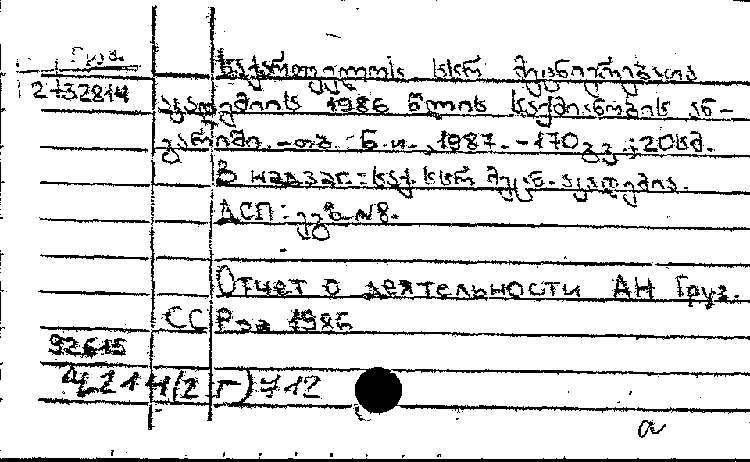 Груз.
2-32814
საქართველოს სსრ მეცნიერებათა
აკადემიის 1986 წლის საქმიანობის ან-
გარიში. -თბ. Б.и., 1987. -170გვ.; 20სმ.
В надзаг.: საქ. სსრ მეცნ. აკადემია.
ДСП: ეგზ. №8.
Отчет о деятельности АН Груз.
ССР за 1986
92615
Ч214(2Г)712
а